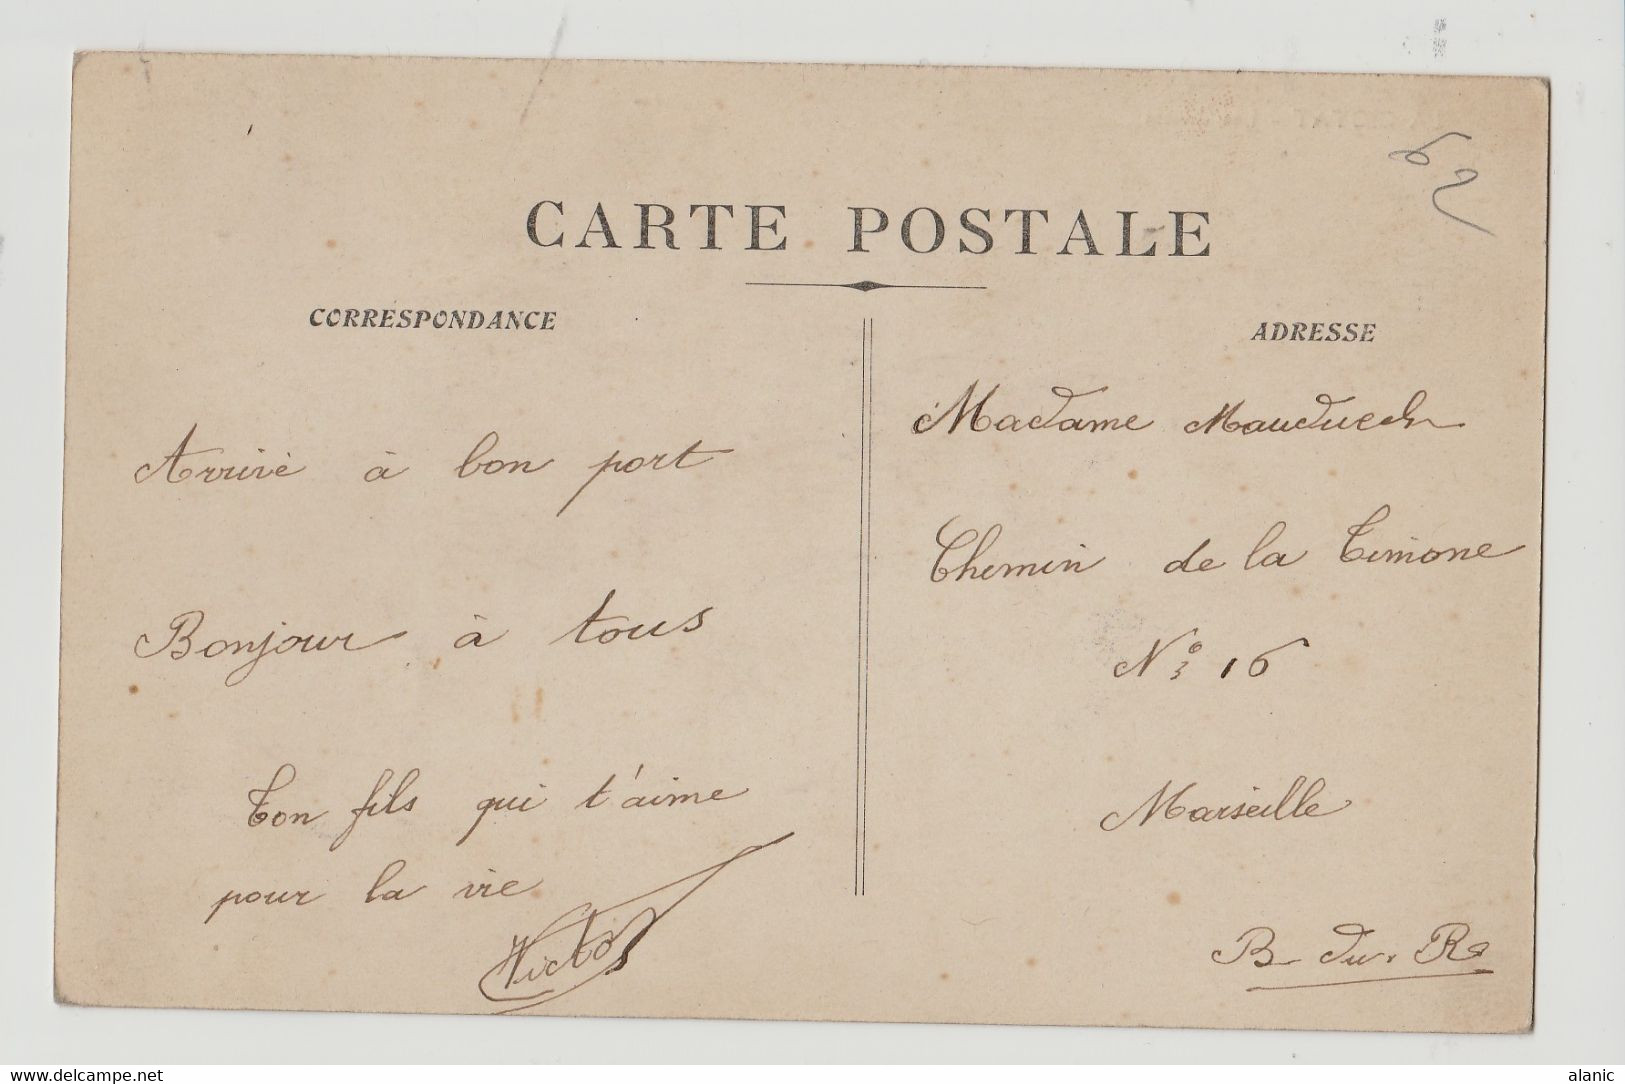 CARTE POSTALE
CORRESPONDANCE
Arrivé à bon port
Bonjour à tous
Ton fils qui t'aime
pour la vie
Victor
ADRESSE
Madame Mauduech
Chemin de la Timone
N° 16
Marseille
B. du. R
www.delcampe.net
alanic